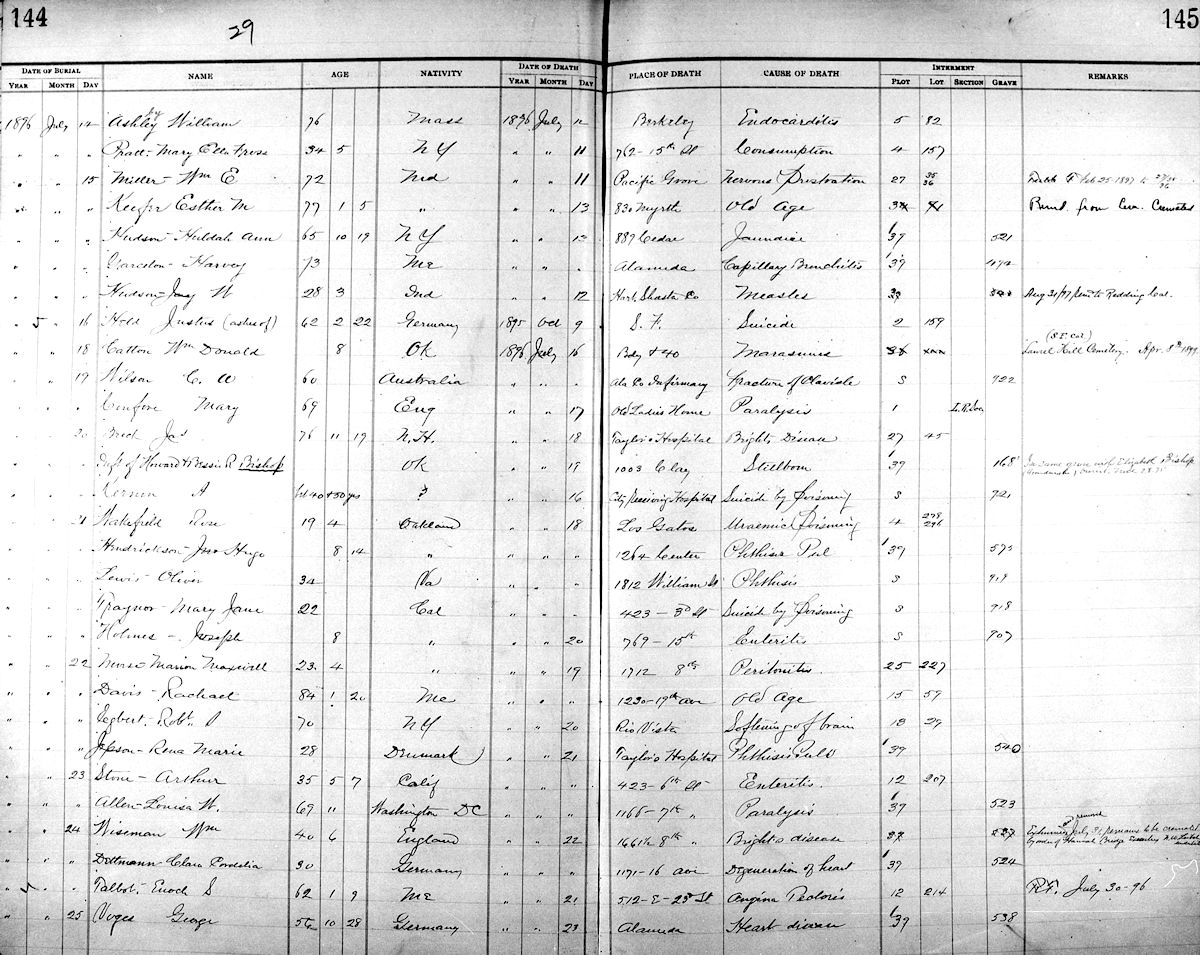 144
29
145
DATE OF BURIAL NAME AGE NATIVITY DATE OF DEATH PLACE OF DEATH CAUSE OF DEATH INTERMENT REMARKS
YEAR MONTH DAY YEAR MONTH DAY PLOT LOT SECTION GRAVE
1896 July 14 Ashley William 76 Mass 1896 July 12 Berkeley Endocarditis 5 82
" " " Pratt - Mary Ella Frost 34 5 N Y " " 11 762 - 15th St Consumption 4 157
" " 15 Miller - Wm E 72 Md " " 11 Pacific Grove Nervous Prostration 27 35 36
" " " Keefer Esther M 77 1 5 " " " 13 830 Myrtle Old Age Cremated
" " " Hudson - Huldah Ann 65 10 19 N Y " " 13 889 Cedar Jaundice 39 521
" " " Harvey 73 Me " " " Alameda Capillary Bronchitis 39
" " " Hudson - Jay W 28 3 Ind " " 12 Hart, Shasta Co Measles 39 Aug 31/97 Redding Cal.
" " 16 Held Justus (ashes of) 62 2 22 Germany 1895 Oct 9 S. F. Suicide 2 159
" " 18 Catton Wm Donald 8 Ok 1896 July 16 Bdy + 40 Marasmus 36 (S F. Cal) Laurel Hill Cemetery. Apr. 8th 1899
" " 19 Wilson C. W 60 Australia " " " Ala Co Infirmary Fracture of Clavicle S 922
" " " Mary 69 Eng " " 17 Old Ladies Home Paralysis 1
" " 20 Jas 76 11 19 N. H. " " 18 Taylors Hospital Brights Disease 27 45
" " " Inft of Howard & Bessie R Bishop Ok " " 19 1003 Clay Stillborn 39 168 In same grave with Elizabeth Bishop
" " " Kernon A bet 40 + 50 yrs ? " " 16 City Receiving Hospital Suicide by Poisoning S 921
" " 21 Wakefield Rose 19 4 Oakland " " 18 Los Gatos Uraemic Poisoning 4 278 296
" " " Hendrickson - Jno Hugo 8 14 " " " " 1264 Center Phthisis Pul 39
" " " Lewis - Oliver 34 Va " " " 1812 William St Phthisis S 919
" " " Traynor - Mary Jane 22 Cal " " " 423 - 3d St Suicid by Poisoning S 918
" " " Holmes - Joseph 8 " " " 20 769 - 15th Enteritis S 907
" " 22 Morse - Marion Maxwell 23 4 " " " 19 1712 8th Peritonitis 25 227
" " " Davis - Rachael 84 1 20 Me " " " 1230 - 19th ave Old Age 15 59
" " " Egbert - Robt. P 70 N Y " " 20 Rio Vista Softening of brain 18 29
" " " Jepson - Rena Marie 28 Denmark " " 21 Taylors Hospital Phthisis Pul 39 540
" " 23 Stone - Arthur 35 5 7 Calif " " " 423 - 6th St Enteritis. 12 207
" " " Allen - Louisa W. 69 11 Washington DC " " " 1166 - 7th " Paralysis 39 523
" " 24 Wiseman Wm 40 6 England " " 22 1661½ 8th " Brights disease July 31 remains to be cremated
" " " Dittmann - Clara Cordelia 30 Germany " " " 1171 - 16 ave Degeneration of heart 39 524
" " " Talbot - Enoch S 62 1 9 Me " " 21 512 - E - 23d St Angina Pectoris 12 214 July 30 - 96
" " 25 Voges George 56 10 28 Germany " " 23 Alameda Heart disease 39 538